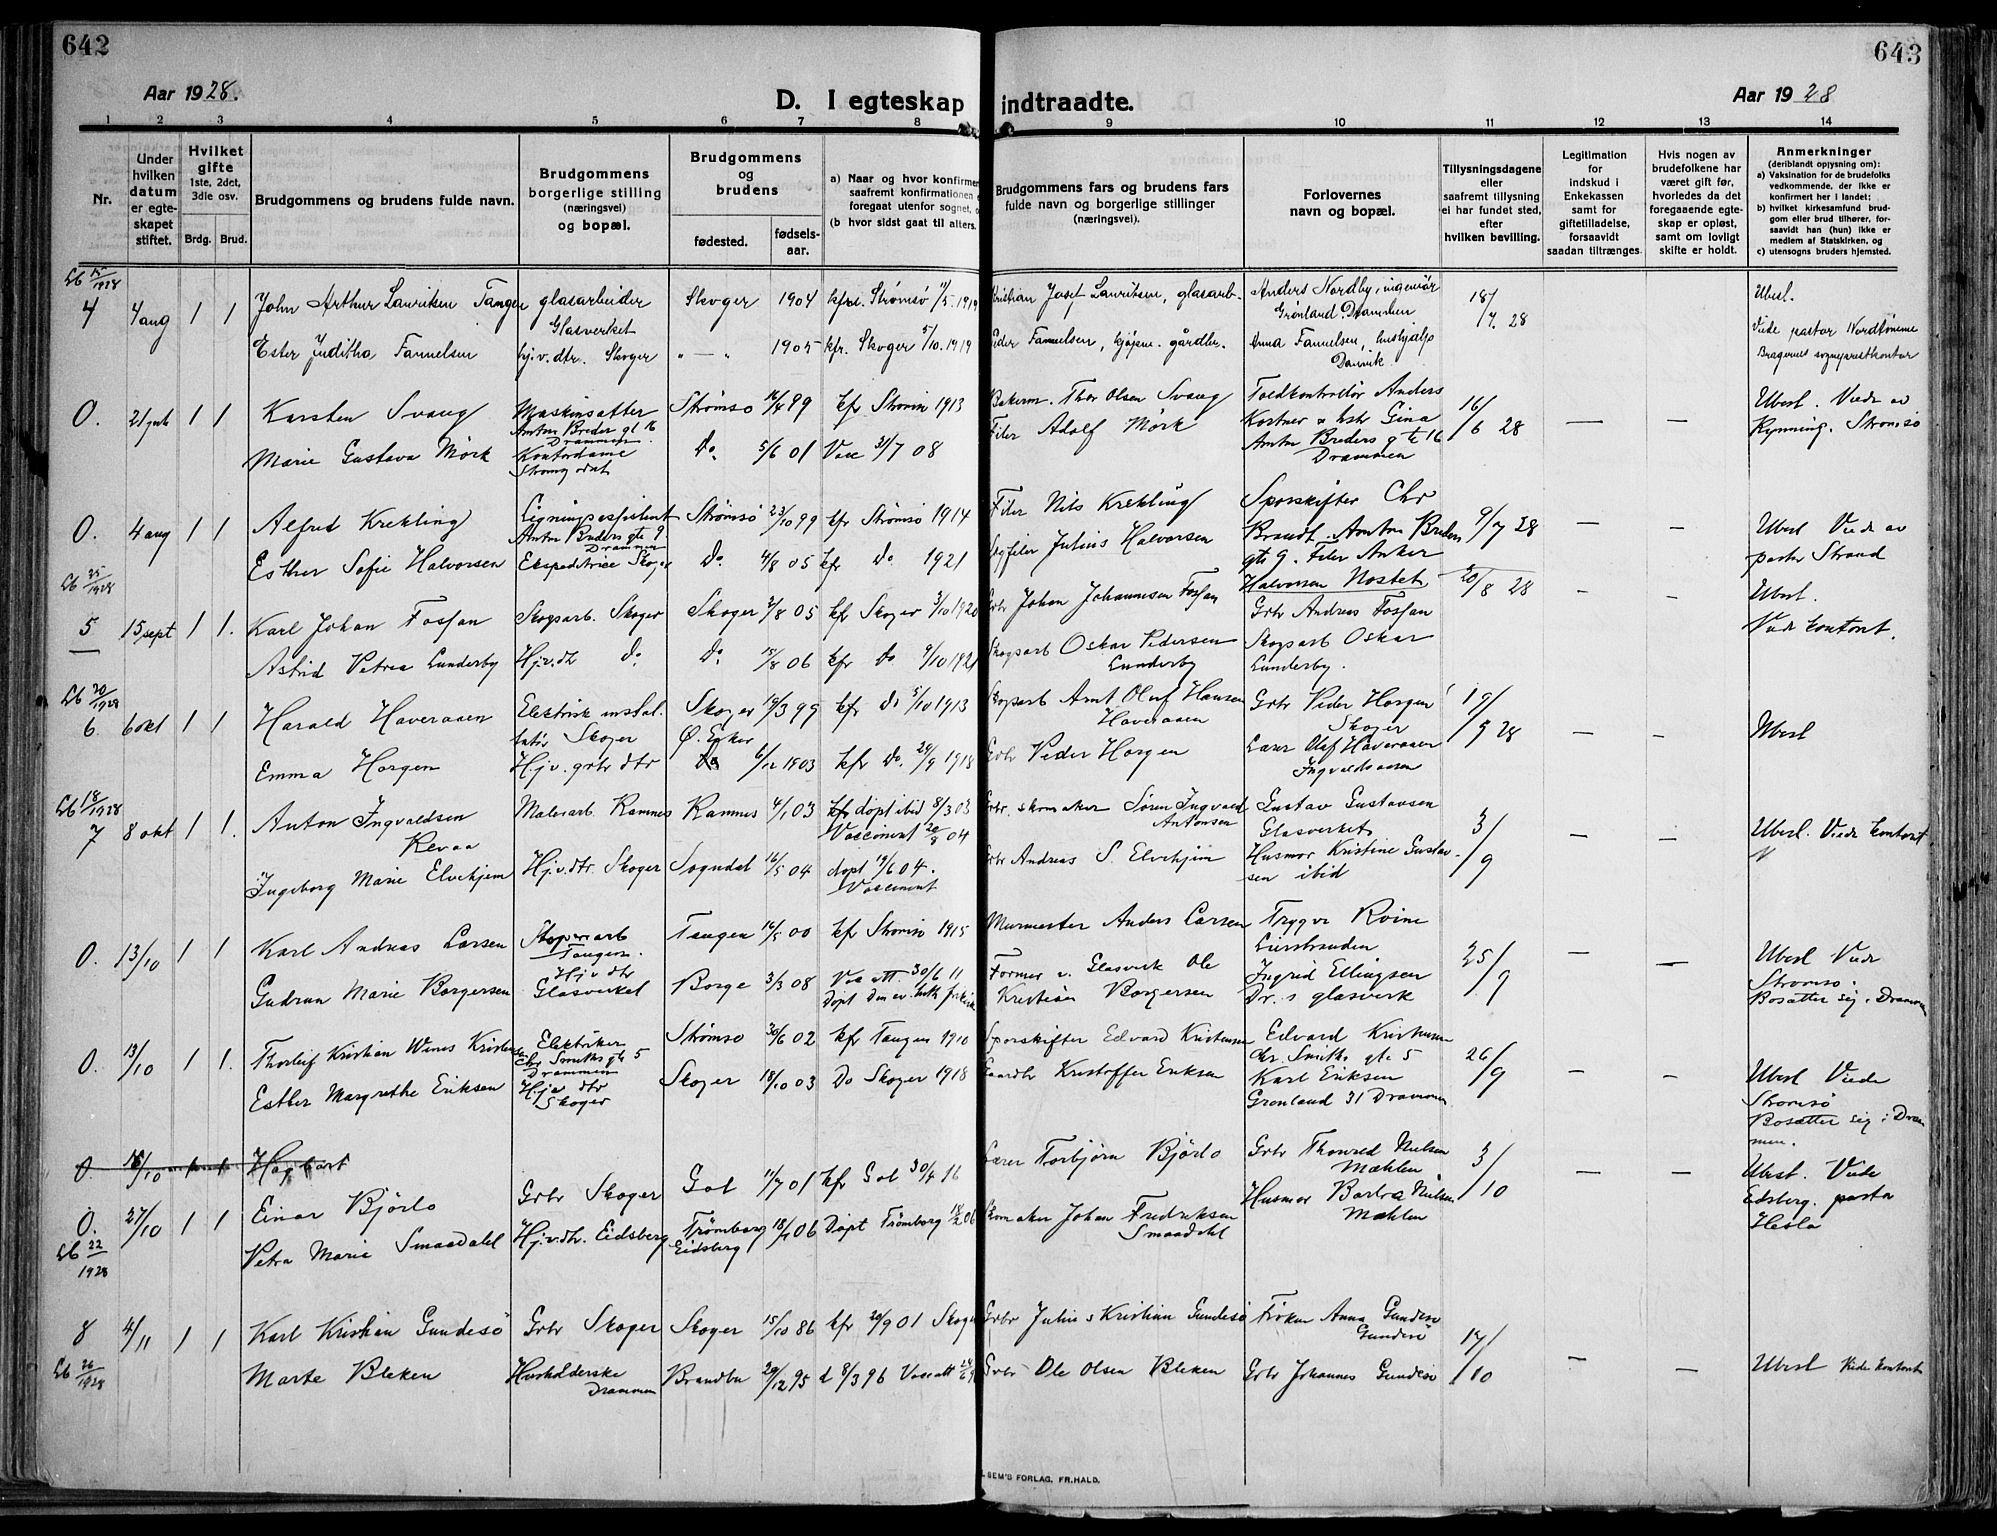 642
643
Aar 1928.
D. I egteskap indtraadte.
Aar 1928
1 2 3 4 5 6 7 8 9 10 11 12 13 14
Nr.
Under hvilken datum er egteskapet stiftet.
Hvilket gifte
1ste, 2det, 3die osv.
Brdg. Brud.
Brudgommens og brudens fulde navn.
Brudgommens borgerlige stilling (næringsvei) og bopæl.
Brudgommens og brudens
fødested.
fødselsaar.
a) Naar og hvor konfirmer
saafremt konfirmationen
foregaat utenfor sognet,
(b hvor sidst gaat til alters.
Brudgommens fars og brudens fars
fulde navn og borgerlige stillinger
(næringsvei).
Forlovernes
navn og bopæl.
Tillysningsdagene
eller
saafremt tillysning
ei har fundet sted,
efter
hvilken bevilling.
Legitimation
for
indskud i
Enkekassen
samt for
giftetilladelse,
forsaavidt
saadan tiltrænges.
Hvis nogen av
brudefolkene har
været gift før,
hvorledes da det
foregaaende egte-
skap er opløst,
samt om lovligt
skifte er holdt.
Anmerkninger
(deriblandt opjysning om):
a) Vaksination for de brudefolks
vedkommende, der ikke er
konfirmert her i landet;
b) hvilket kirkesamfund brud-
gom eller brud tilhører, for-
saavidt han (hun) ikke er
medlem af Statskirken, og
c) utensogns bruders hjemsted.
Lb 15/1928
4 4 aug 1 1 John Arthur Lauritsen Tangen glasarbeider Glasverket Skoger 1904 kfr. Strømsø 1919 Kristian Josef Lauritsen, glasarb. Anders Nordby, ingeniør Grønland Drammen 18/7. 28 Ubesl.
Ester Juditha Fannelsen hj.v.dtr. Skoger " — " 1905 kfr. Skoger 5/10. 1919 Peder Fannelsen, gårdbr. Anna Fannelsen, hushjælp Danvik Viede pastor Bragernes sogneprestkontor
0. 21 1 1 Karsten Svang Maskinsætter Anton Breders gt 16 Drammen Strømsø 16/4 99 kfr Strømsø 1913 Bakerm. Thor Olsen Svang Toldkontrollør Anders Kostner & hstr Gina Anton Breders gte 16 Drammen 16/6 28 — — Ubesl. Viede av Rynning. Strømsø
Marie Gustava Mörk Kontordame Do. 5/6 01 Vacc 31/7 08 Filer Adolf Mörk
0. 4 aug 1 1 Alfred Krekling Ligningsassistent Anton Breders gte 9 Drammen Strømsø 23/10 99 kfr Strømsø 1914 Filer Nils Krekling Sporskifter Chr Brandt. Anton Breders gte 9. Filer Anker Halvorsen Nøstet 9/7 28 — — Ubesl Viede av pastor Strand
Esther Sofie Halvorsen Ekspeditrice Skoger Do. 4/8 05 kfr Do 1921 Julius Halvorsen
Lb 25/1928
5 15 sept 1 1. Karl Johan Fosjan Skogsarb. Skoger Skoger 2/8 05 kfr Skoger 3/10 1920 Grbr Johan Johannesen Fosjan Grbr Andreas Fosjan 20/8 28 - - Ubesl. Viede kontoret.
Astrid Petrea Lunderby Hj.v.dtr Do Do. 06 kfr Do 9/10 1921 Skogsarb Oskar Pedersen Lunderby Skogsarb Oskar Lunderby.
Lb 20/1928
6. 6 okt 1 1 Harald Haveraaen Elektrisk instal. latør Skoger Skoger 3 99 kfr Do 5/10 1913 Skogsarb Arnt Oluf Hansen Haveraaen Grbr Peder Horgen Skoger 19/9 28 — — Ubesl
Emma Horgen Hj.v. grbr dtr Ø. Eker 6/12 1903 kfr Do. 29/9 1918 Grbr Peder Horgen Lærer Olaf Haveraaen Ingvaldsaasen
Lb 18/1928
7 8 okt 1 1. Anton Ingvaldsen Revaa Malerarb. Ramnes Ramnes 4/1 03 døpt ibid 8/3 03 Vaccinert 04 Grbr. skomaker Søren Ingvald Antonsen Gustav Gustavsen Glasverket 3/9 — — Ubesl. Viede kontoret
Ingeborg Marie Elvehjem Hj.v.dtr. Skoger Sogndal 16/5 04 døpt 19/6 04. Vaccinert Grbr Andreas S. Elvehjem Husmor Kristine Gustavsen ibid
0. 13/10 1 1 Karl Andreas Larsen Tangen. Tangen 5 00 kfr Strømsø 1915 Murmester Anders Larsen Trygve Roine Lierstranden 25/9 — — Ubesl Viede Strømsø. Bosætter sig i Drammen
Gudrun Marie Borgersen Hj v dtr Glasverket Borge 3/3 08 30/6 11 Former v. Glasverk Ole Kristian Borgersen Ingrid Ellingsen Dr.s glasverk
0. 13/10 1 1. Thorleif Kristian Wines Kristensen Elektriker Chr Smiths gte 5 Drammen Strømsø 30/6 02 kfr Tangen 1910 Sporskifter Edvard Kristensen Edvard Kristensen Chr. Smiths gte 5 26/9 — — Ubesl Viede Strømsø Bosætter sig i Drammen.
Esther Margrethe Eriksen Hj.v dtr Skoger Skoger 18/10 03 Do Skoger 1918 Gaardbr Kristoffer Eriksen Karl Eriksen Grønland 31 Drammen
0. 16/10 1 1 Hagbart
0. 27/10 1 1 Einar Bjørlo Grbr Skoger Gol 11/7 01 kfr Gol 30/4 16 Lærer Torbjørn Bjørlo Grbr Thorvald Nielsen Mæhlen 3/10 — — Ubesl. Viede Eidsberg. pastor
Lb 22/1928
Petra Marie Smaadahl Hj.v.dtr. Eidsberg Trømborg Eidsberg 06 Døpt Trømborg 06 Skomaker Johan Fredriksen Smaadahl Husmor Borbra Nielsen Mæhlen
8 4/11 1 1 Karl Kristian Gundesø Grbr Skoger Skoger 15/10 86 kfr 29/9 01 Skoger Grbr Julius Kristian Gundesø Frøken Anna Gundesø Gundesø 17/10 — — Ubesl Viede kontoret
Lb 26/1928
Marte Bleken Husholderske Drammen Brandbu 29/12 95 d 8/3 96 Vacc att Grbr Ole Olsen Bleken Grbr Johannes Gundesø
SEM'S FORLAG, FR.HALD.